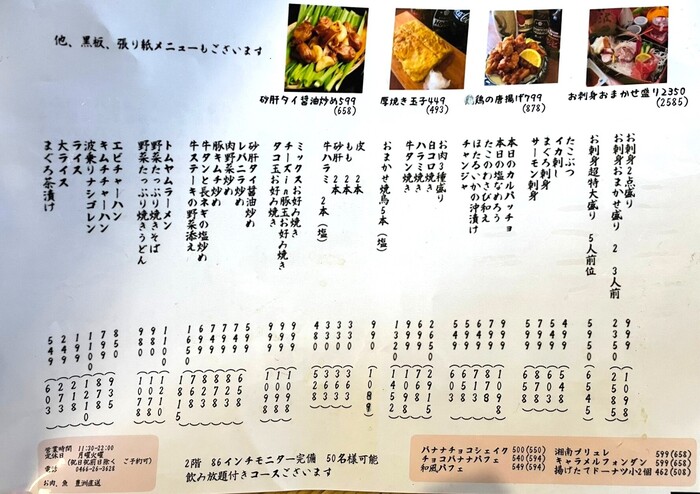 他、黒板、張り紙メニューもございます
砂肝タイ醤油炒め599
(658)
厚焼き玉子449
(493)
鶏の唐揚げ799
(878)
お刺身おまかせ盛り2350
(2585)
お刺身2点盛り 999 (1098)
お刺身おまかせ盛り 2 3人前 2350 (2585)
お刺身超特大盛り 5人前位 5950 (6545)
たこぶつ 499 (548)
イカ刺し 599 (658)
まぐろ刺身 799 (878)
サーモン刺身 599 (658)
本日のカルパッチョ 799 (878)
本日の塩なめろう 799 (878)
たこのわさび和え 649 (713)
ほたるいかの沖漬け 549 (603)
チャンジャ 549 (603)
お肉3種盛り 2650 (2915)
白コロ焼き 699 (768)
ハラミ焼き 999 (1098)
牛タン焼き 1320 (1452)
おまかせ焼鳥5本(塩) 990 (1088)
皮 2本 330 (363)
もも 2本 330 (363)
砂肝 2本 330 (363)
牛ハラミ 2本(塩) 480 (528)
ミックスお好み焼き 999 (1098)
チーズin豚玉お好み焼き 999 (1098)
タコ玉お好み焼き 999 (1098)
砂肝タイ醤油炒め 599 (658)
レバニラ炒め 749 (823)
肉野菜炒め 799 (878)
豚キムチ炒め 749 (823)
牛タンと長ネギの塩炒め 699 (768)
牛ステーキの野菜添え 1650 (1815)
トムヤムラーメン 1100 (1210)
野菜たっぷり焼きそば 980 (1078)
野菜たっぷり焼きうどん 980 (1078)
エビチャーハン 850 (935)
キムチチャーハン
波乗りナシゴレン 1100 (1210)
ライス 199 (218)
大ライス 249 (273)
まぐろ茶漬け 549 (603)
営業時間 11:30-22:00
定休日 月曜火曜
(祝日祝前日除く ご予約可)
電話 0466-26-3628
お肉、魚 豊洲直送
2階 86インチモニター完備 50名様可能
飲み放題付きコースございます
バナナチョコシェイク 500(550)
チョコバナナパフェ 540(594)
和風パフェ 549(594)
湘南ブリュレ 599(658)
キャラメルフォンダン 599(658)
揚げたてドーナツ小2個 462(508)